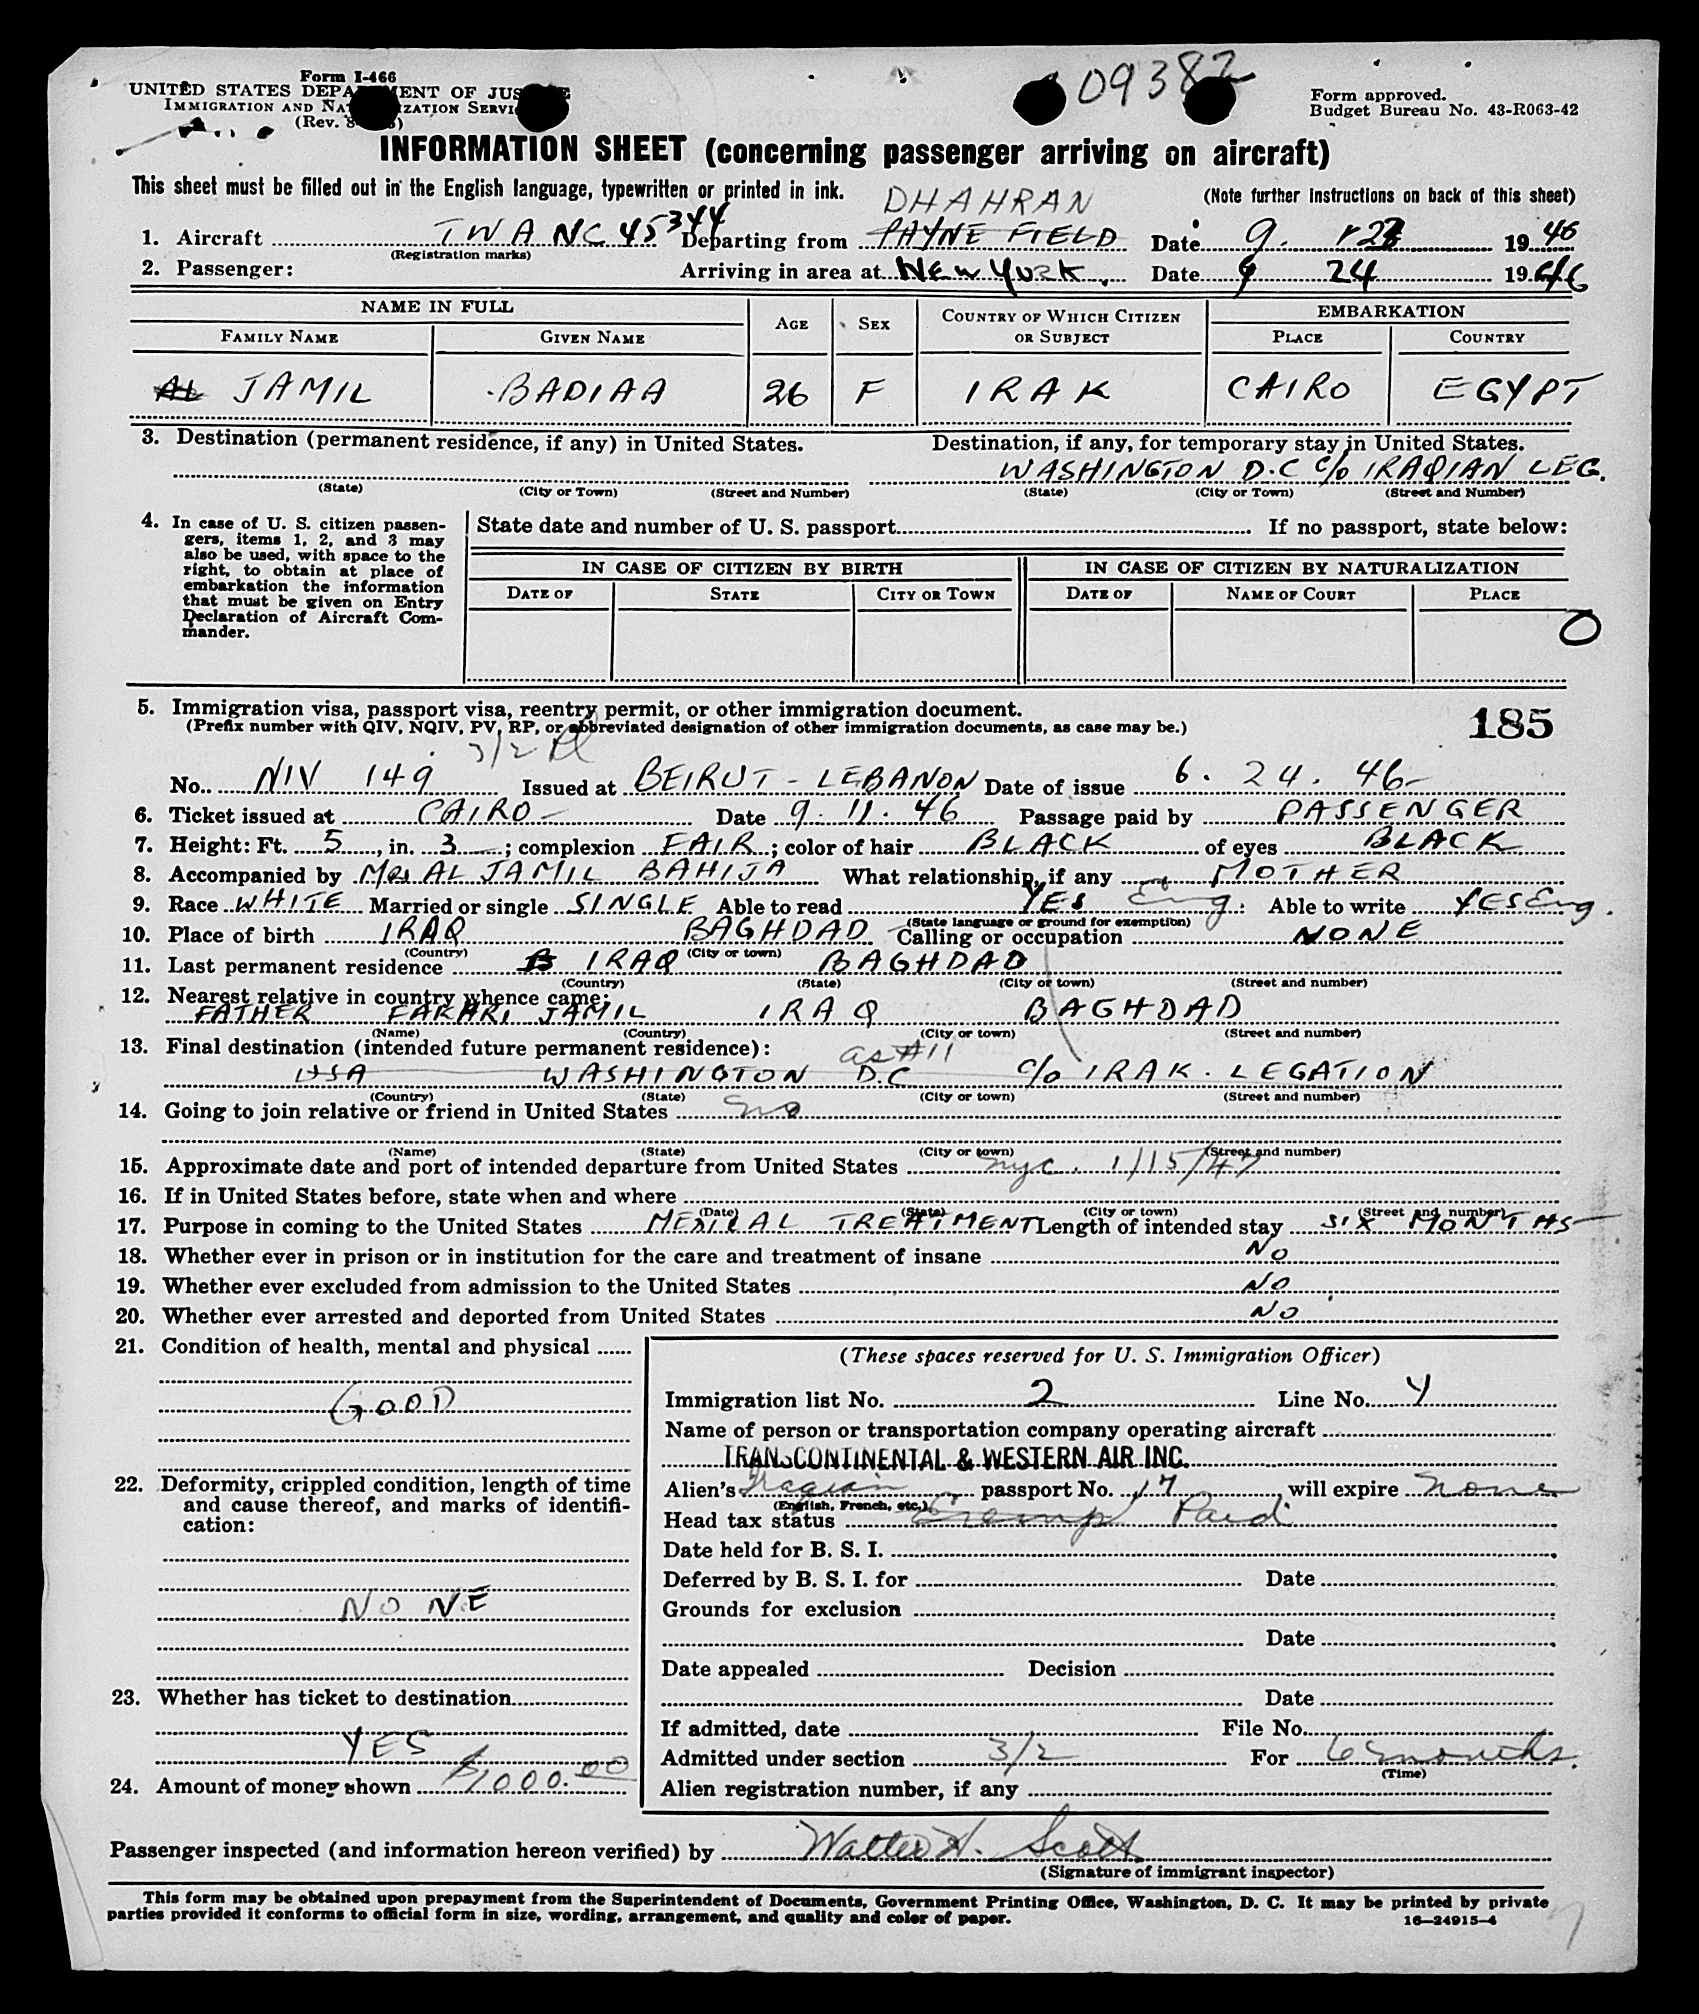 09382
Form I-466
UNITED STATES DEPARTMENT OF JUSTICE
IMMIGRATION AND NATURALIZATION SERVICE
(Rev.
Form approved.
Budget Bureau No. 43-R063-42
INFORMATION SHEET (concerning passenger arriving on aircraft)
This sheet must be filled out in the English language, typewritten or printed in ink. (Note further instructions on back of this sheet)
DHAHRAN
1. Aircraft TWA NC 45344 Departing from PAYNE FIELD Date 9. 1946
(Registration marks)
2. Passenger: Arriving in area at NEW YORK. Date 9 24 1946
NAME IN FULL AGE SEX COUNTRY OF WHICH CITIZEN OR SUBJECT EMBARKATION
FAMILY NAME GIVEN NAME PLACE COUNTRY
AL JAMIL BADIAA 26 F IRAK CAIRO EGYPT
3. Destination (permanent residence, if any) in United States. Destination, if any, for temporary stay in United States.
WASHINGTON D.C c/o IRAQIAN LEG.
(State) (City or Town) (Street and Number) (State) (City or Town) (Street and Number)
4. In case of U. S. citizen passen-
gers, items 1, 2, and 3 may
also be used, with space to the
right, to obtain at place of
embarkation the information
that must be given on Entry
Declaration of Aircraft Com-
mander.
State date and number of U. S. passport If no passport, state below:
IN CASE OF CITIZEN BY BIRTH IN CASE OF CITIZEN BY NATURALIZATION
DATE OF STATE CITY OR TOWN DATE OF NAME OF COURT PLACE
0
5. Immigration visa, passport visa, reentry permit, or other immigration document.
(Prefix number with QIV, NQIV, PV, RP, or abbreviated designation of other immigration documents, as case may be.)
185
3/2
No. NIV 149 Issued at BEIRUT - LEBANON Date of issue 6. 24. 46-
6. Ticket issued at CAIRO- Date 9. 11. 46 Passage paid by PASSENGER
7. Height: Ft. 5, in. 3; complexion FAIR; color of hair BLACK of eyes BLACK
8. Accompanied by Mrs AL JAMIL BAHIJA What relationship, if any MOTHER
9. Race WHITE Married or single SINGLE Able to read YES Eng.: Able to write YES Eng.
(State language or ground for exemption)
10. Place of birth IRAQ BAGHDAD Calling or occupation NONE
(Country) (City or town)
11. Last permanent residence IRAQ BAGHDAD
(Country) (State) (City or town) (Street and number)
12. Nearest relative in country whence came:
FATHER FAKHRI JAMIL IRAQ BAGHDAD
(Name) (Country) (City or town) (Street and number)
13. Final destination (intended future permanent residence): as #11
USA WASHINGTON D.C c/o IRAK. LEGATION
(Country) (State) (City or town) (Street and number)
14. Going to join relative or friend in United States no
(Name) (State) (City or town) (Street and number)
15. Approximate date and port of intended departure from United States nyc. 1/15/47
16. If in United States before, state when and where
(Date) (State) (City or town) (Street and number)
17. Purpose in coming to the United States MEDICAL TREATMENT Length of intended stay SIX MONTHS
18. Whether ever in prison or in institution for the care and treatment of insane NO
19. Whether ever excluded from admission to the United States NO
20. Whether ever arrested and deported from United States NO
21. Condition of health, mental and physical
GOOD
22. Deformity, crippled condition, length of time
and cause thereof, and marks of identifi-
cation:
NONE
23. Whether has ticket to destination
YES
24. Amount of money shown $1000.00
(These spaces reserved for U. S. Immigration Officer)
Immigration list No. 2 Line No. 4
Name of person or transportation company operating aircraft
TRANSCONTINENTAL & WESTERN AIR INC.
Alien's Iraqian passport No. 17, will expire none
(English, French, etc.)
Head tax status Exempt Paid
Date held for B. S. I.
Deferred by B. S. I. for Date
Grounds for exclusion
Date
Date appealed Decision
Date
If admitted, date File No.
Admitted under section 3/2 For 6 months.
(Time)
Alien registration number, if any
Passenger inspected (and information hereon verified) by Walter H. Scott
(Signature of immigrant inspector)
This form may be obtained upon prepayment from the Superintendent of Documents, Government Printing Office, Washington, D. C. It may be printed by private
parties provided it conforms to official form in size, wording, arrangement, and quality and color of paper.
16—24915-4